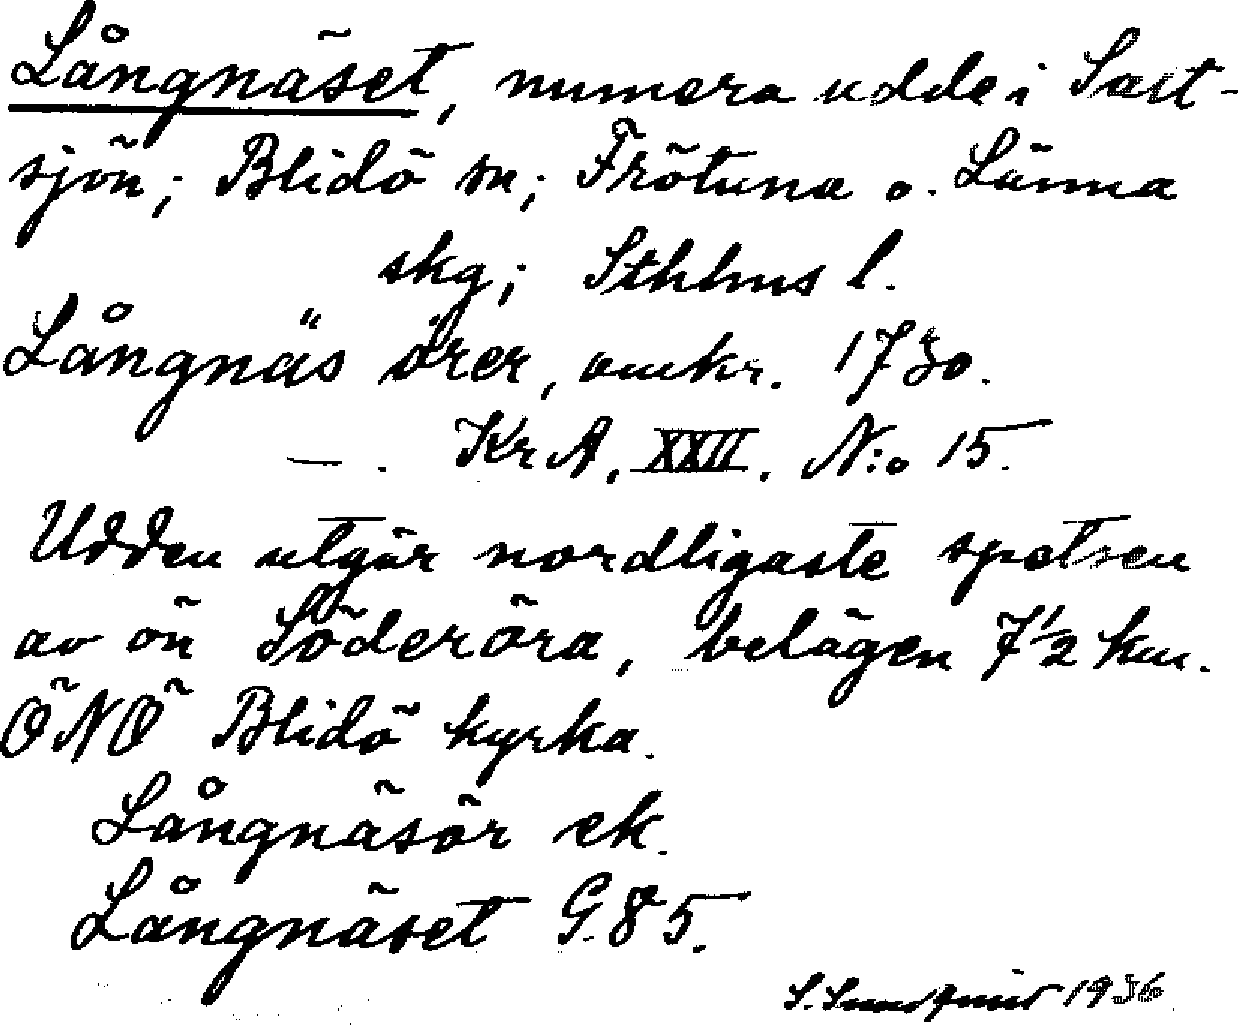 Långnäset, numera udde i Salt-
sjön; Blidö sn; Frötuna o. Länna
skg; Sthlms l.
Långnäs örer, omkr. 1730.
—. KrA. XXII. N:o 15.
Udden utgör nordligaste spetsen
av ön Söderöra, belägen 7½ km.
ÖNÖ Blidö kyrka.
Långnäsör ek.
Långnäset G.85.
1936